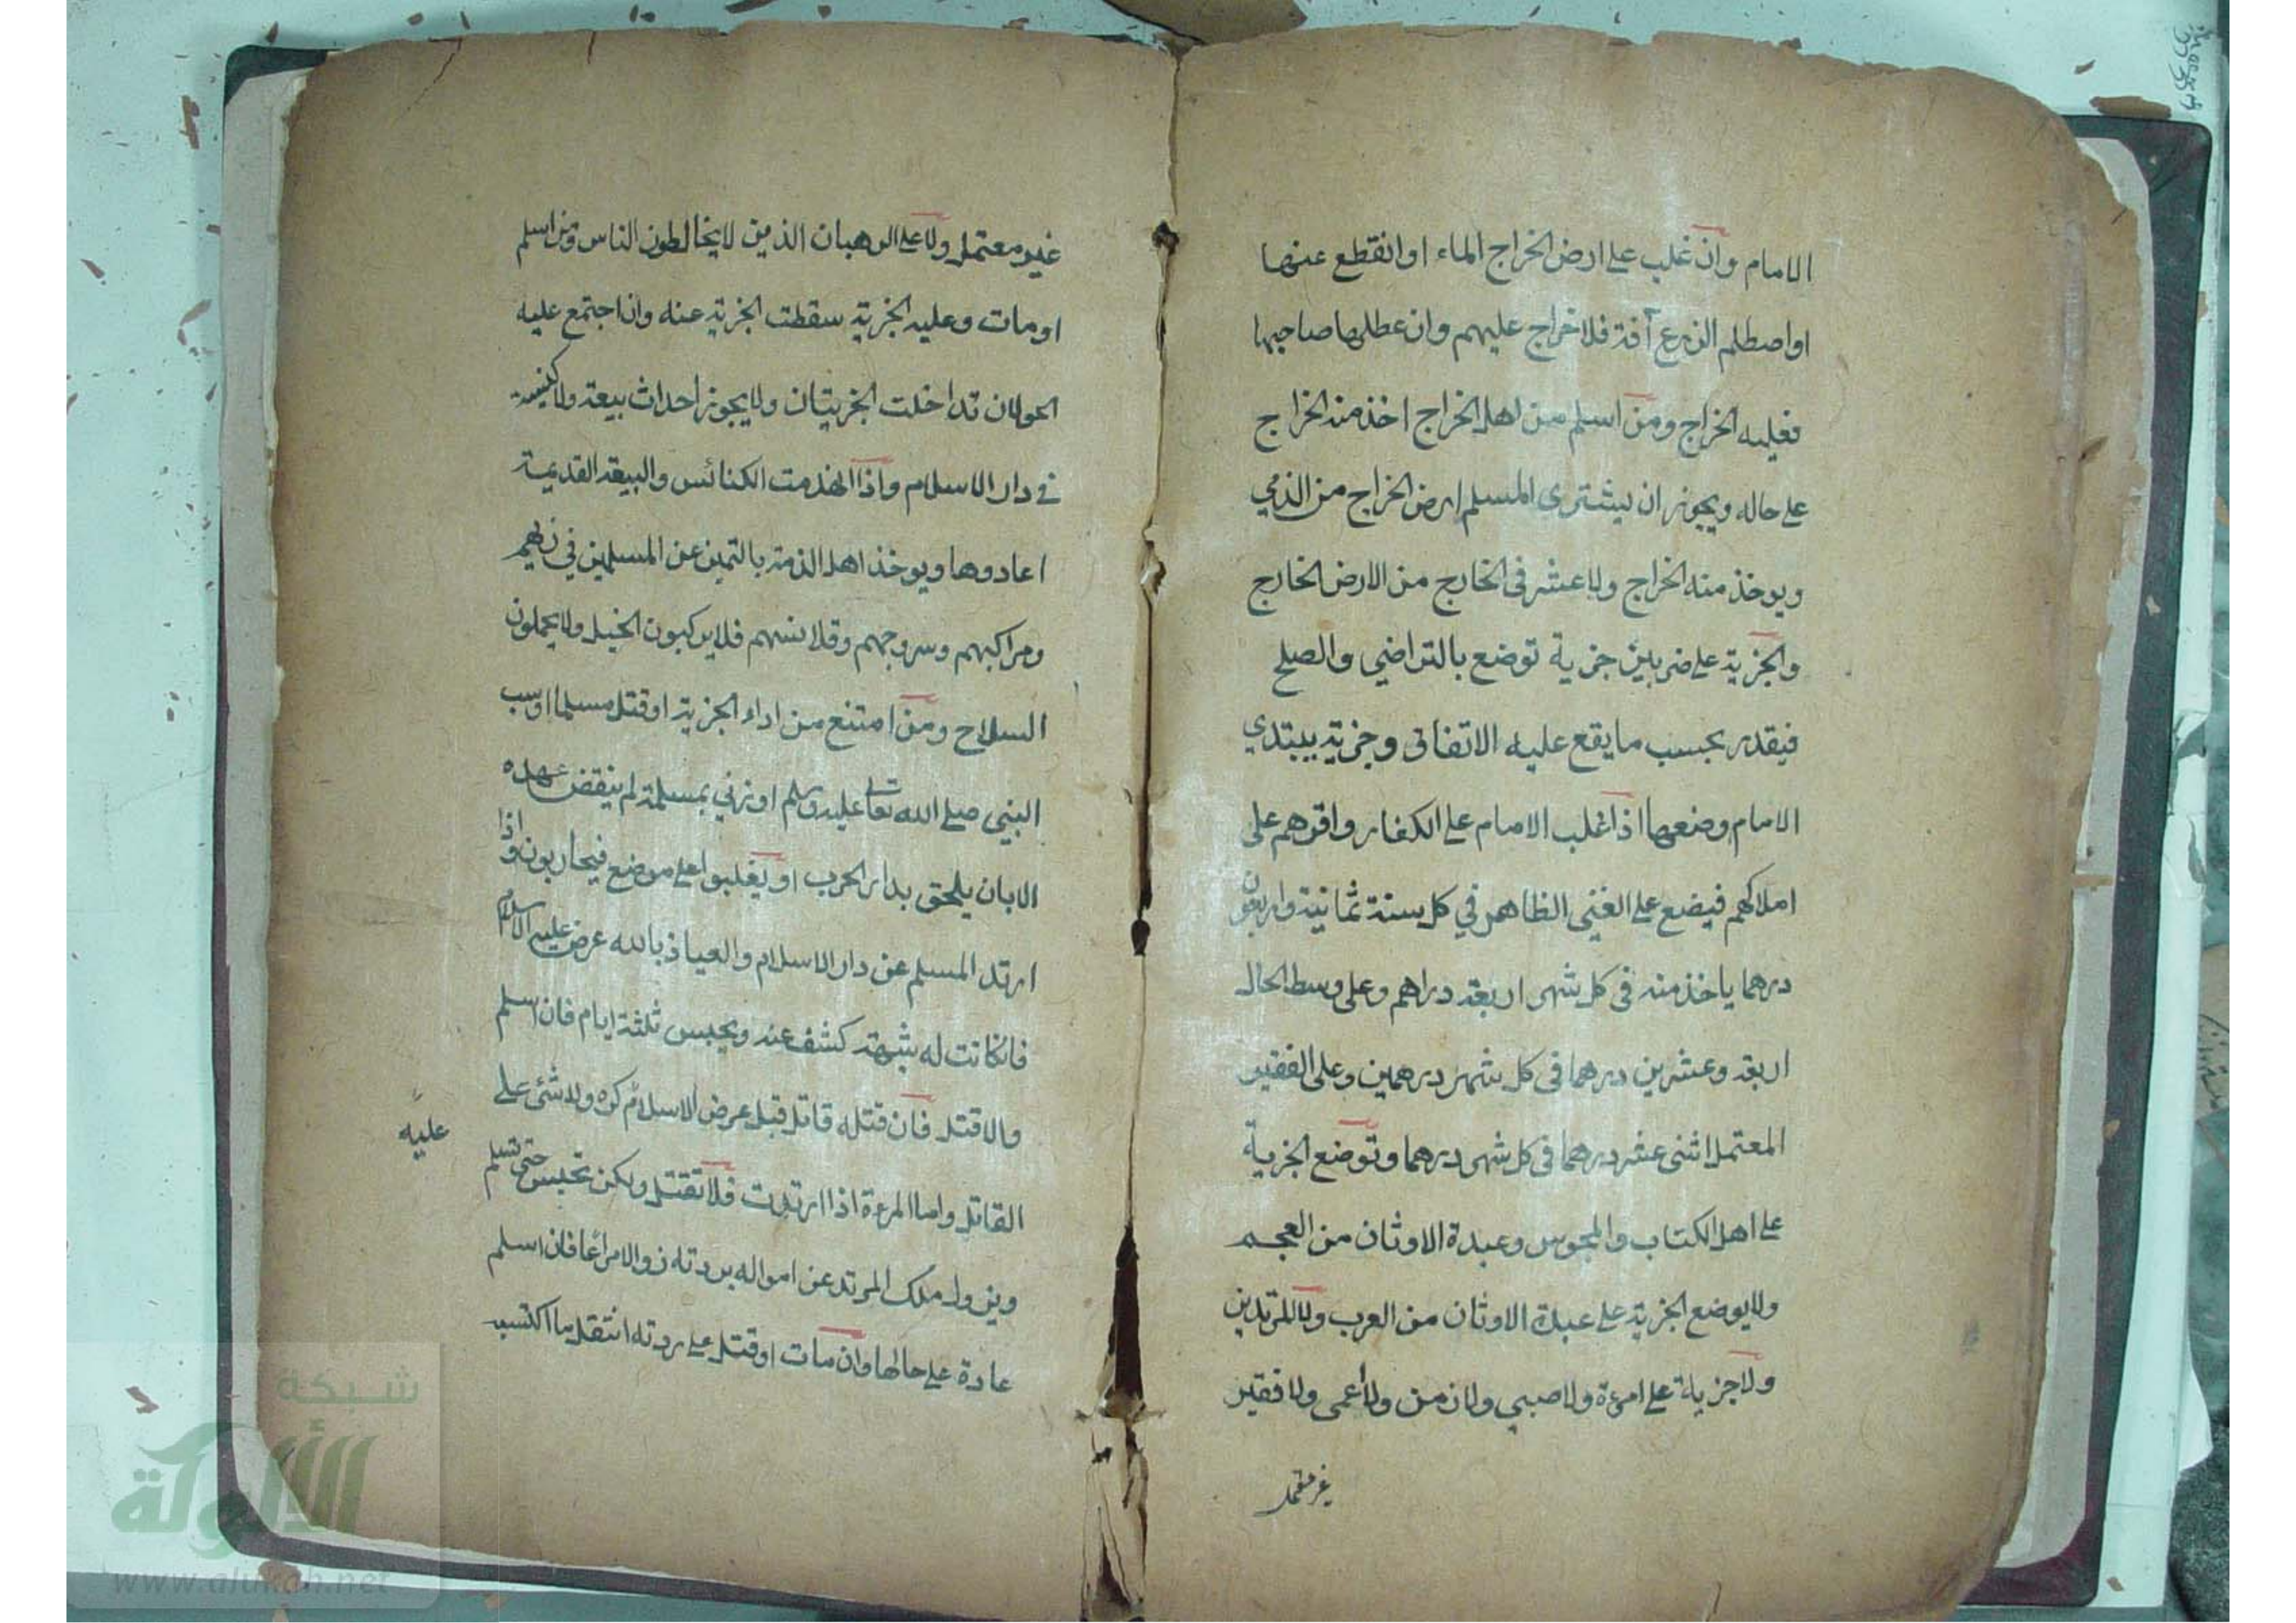 الامام وان غلب على ارض الخراج الماء او انقطع عنها
او اصطلم الزرع آفة فلا خراج عليهم وان عطلها صاحبها
فعليه الخراج ومن اسلم من اهل الخراج اخذ منه الخراج
على حاله ويجوز ان يشترى المسلم ارض الخراج من الذمي
ويوخذ منه الخراج ولا عشر فى الخارج من الارض الخارج
والجزية على ضربين جزية توضع بالتراضي والصلح
فيقدر بحسب ما يقع عليه الاتفاق وجزية يبتدي
الامام وضعها اذا غلب الامام على الكفار واقرهم على
املاكهم فيضع على الغني الظاهر في كل سنة ثمانية واربعون
درهما ياخذ منه فى كل شهر اربعة دراهم وعلى وسط الحال
اربعة وعشرين درهما فى كل شهر درهمين وعلى الفقير
المعتمل اثنى عشر درهما فى كل شهر درهما وتوضع الجزية
على اهل الكتاب والمجوس وعبدة الاوثان من العجم
ولا يوضع الجزية على عبدة الاوثان من العرب ولا المرتدين
ولا جزية على امرءة ولا صبي ولا زمن ولا أعمى ولا فقير
غير معتمل
غير معتمل ولا على الرهبان الذين لا يخالطون الناس ومن اسلم
او مات وعليه الجزية سقطت الجزية عنه وان اجتمع عليه
الحولان تداخلت الجزيتان ولا يجوز احداث بيعة ولا كنيسة
فى دار الاسلام واذا انهدمت الكنائس والبيعة القديمة
اعادوها ويوخذ اهل الذمة بالتميز عن المسلمين في زيهم
ومراكبهم وسروجهم وقلانسهم فلا يركبون الخيل ولا يحملون
السلاح ومن امتنع من اداء الجزية او قتل مسلما او سب
النبي صلى الله تعالى عليه وسلم او زني بمسلمة لم ينقض عهده
الا بان يلحق بدار الحرب او يغلبوا على موضع فيحاربون واذا
ارتد المسلم عن دار الاسلام والعياذ بالله عرض عليه الاسلام
فان كانت له شبهة كشف عنه ويحبس ثلثة ايام فان اسلم
والا قتل فان قتله قاتل قبل عرض الاسلام كره ولا شئ على
عليه
القاتل واما المرءة اذا ارتدت فلا تقتل ولكن تحبس حتى تسلم
ويزول ملك المرتد عن امواله بردته زوالا مراعا فان اسلم
عادة على حالها وان مات او قتل على ردته انتقل ما اكتسبه
شبكة
الألوكة
www.alukah.net